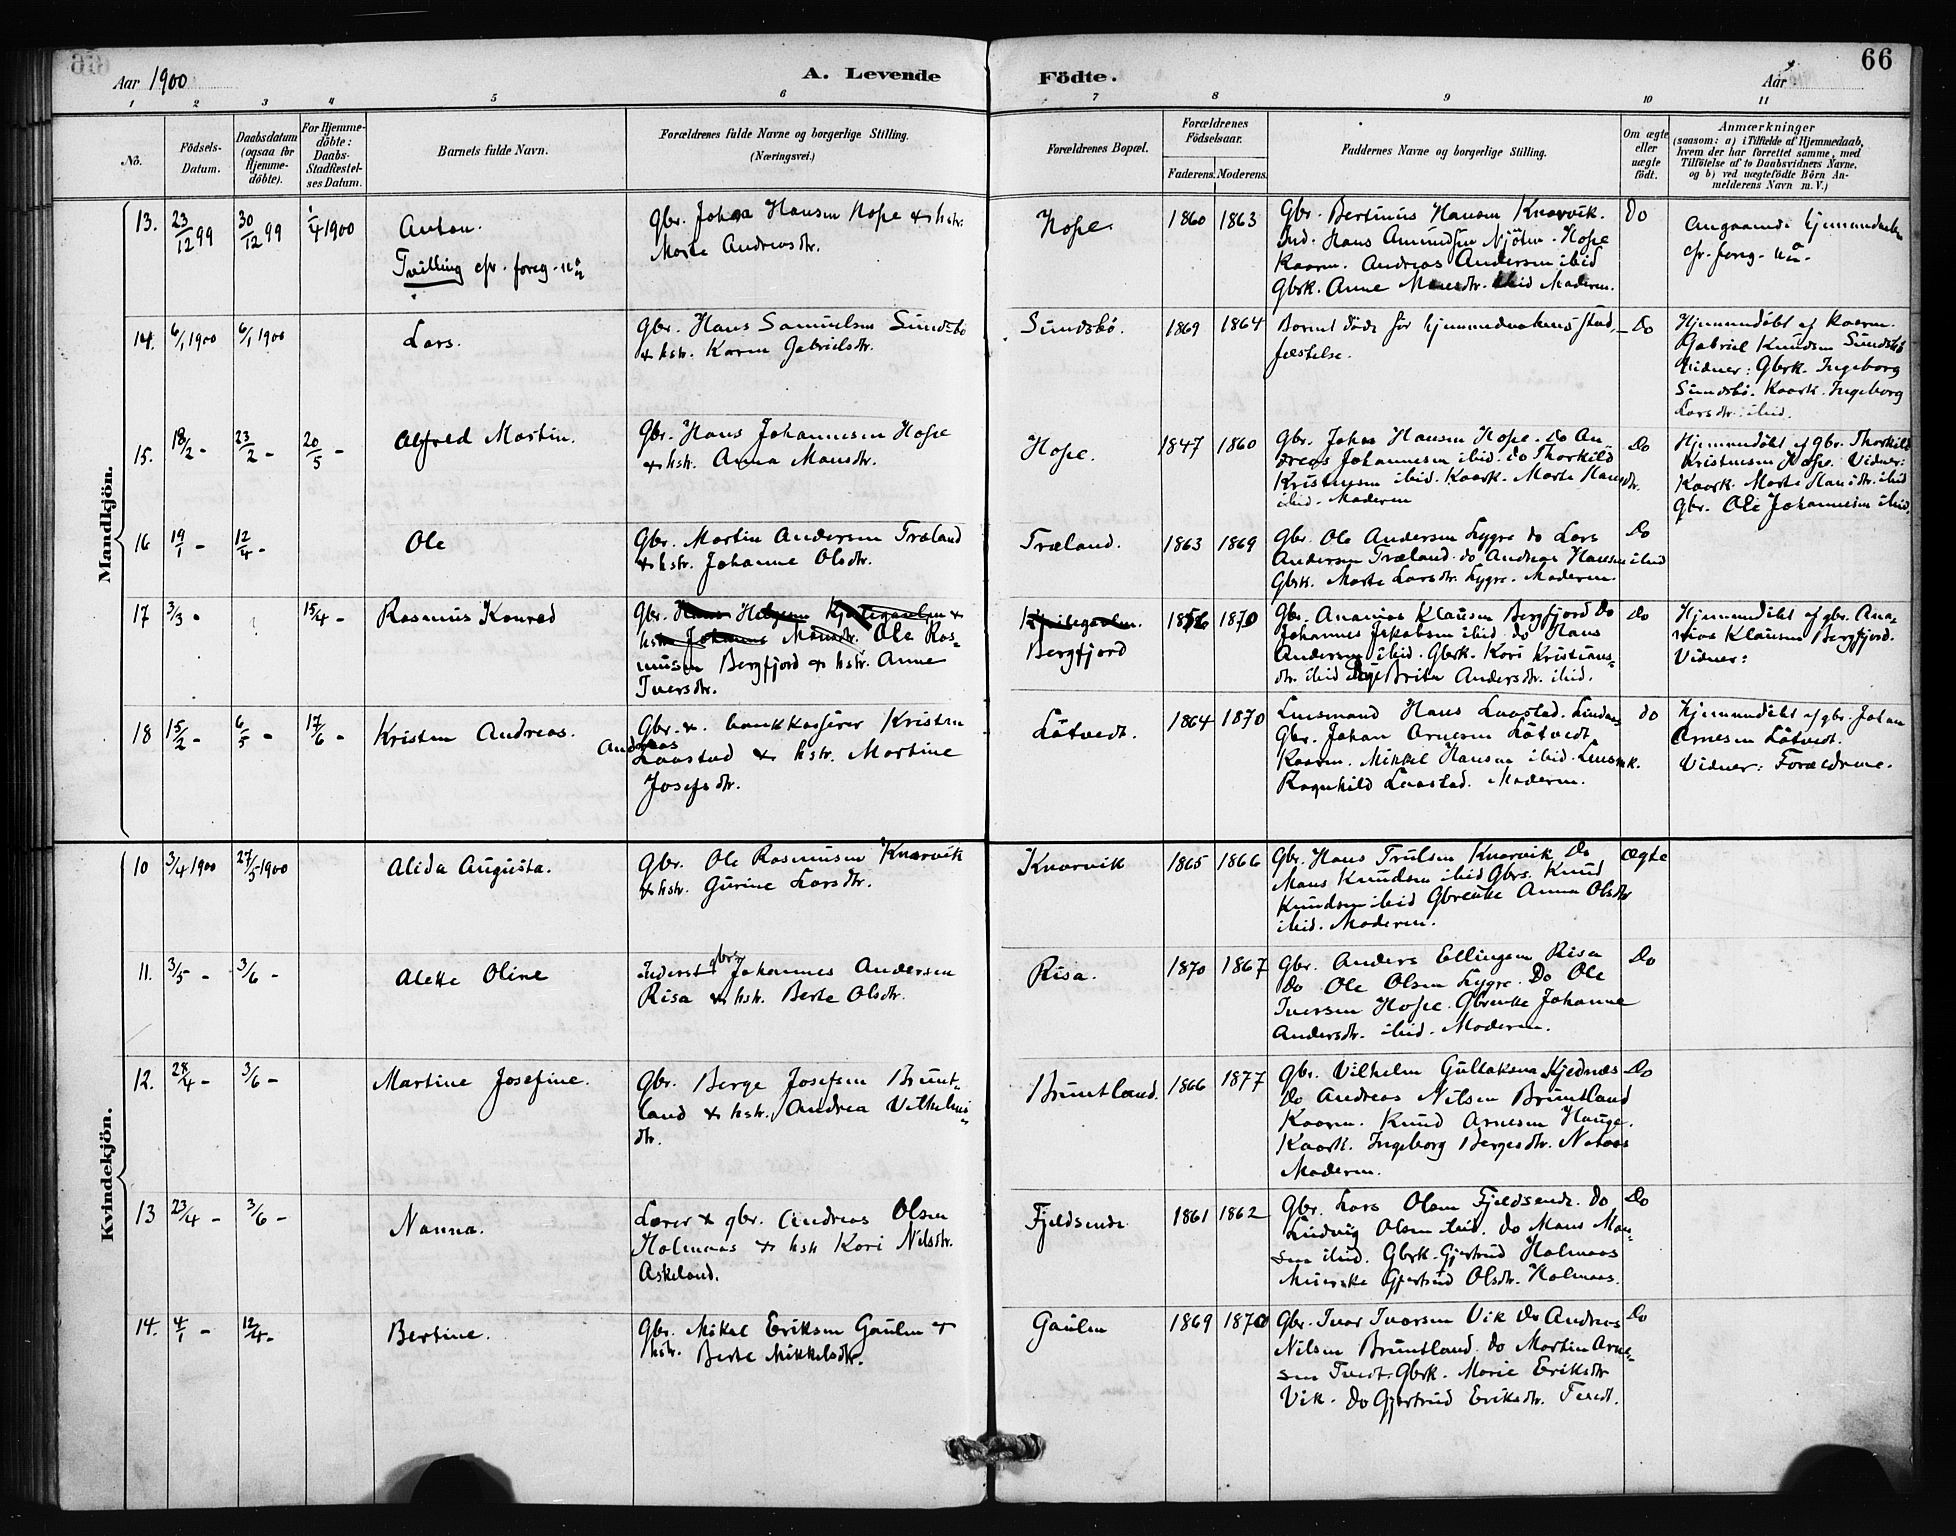 66
Aar 1900
A. Levende
Födte.
Aar
1 2 3 4 5 6 7 8 9 10 11
No.
Födsels-
Datum.
Daabsdatum
(ogsaa for
Hjemme-
döbte).
For Hjemme-
döbte:
Daabs-
Stadfæstel-
ses Datum.
Barnets fulde Navn.
Forældrenes fulde Navne og borgerlige Stilling.
(Næringsvei.)
Forældrenes Bopæl.
Forældrenes
Födselsaar.
Faderens. Moderens.
Faddernes Navne og borgerlige Stilling.
Om ægte
eller
uægte
födt.
Anmærkninger
(saasom: a) i Tilfælde af Hjemmedaab,
hvem der har forrettet samme, med
Tilföielse af to Daabsvidners Navne,
og b) ved uægtefödte Börn An-
melderens Navn m. V.)
Mandkjön.
13.
23/12 99
30/12 99
1/4 1900
Anton.
Tvilling cfr. foreg. no
Gbr. Johan Hansen Hope & hstr.
Marte Andreasdtr.
Hope.
1860
1863
Gbr. Bertinius Hansen Knarvik.
Ind. Hans Amundsen Njöten. Hope
Kaarm. Andreas Andersen ibid
Gbrk. Anne Monsdtr. ibid Moderen.
Do
Angaaende hjemmedaaben
cfr. foreg. no.
14.
6/1 1900
6/1 1900
Lars.
Gbr. Hans Samuelsen Sundsbö
& hstr. Karen Gabrielsdtr.
Sundsbö.
1869
1864
Barnet döde för hjemmedaabens stad-
fæstelse.
Do
Hjemmedöbt af kaarm.
Gabriel Knudsen Sundsbö
Vidner: Gbrk. Ingeborg
Sundsbö. Kaark. Ingeborg
Larsdtr. ibid.
15.
18/2 -
23/2 -
20/5 -
Alfred Martin.
Gbr. Hans Johannesen Hope
& hstr. Anna Monsdtr.
Hope.
1847
1860
Gbr. Johan Hansen Hope. Do An-
dreas Johannesen ibid. do Thorkild
Kristensen ibid. Kaark. Marte Hansdtr.
ibid. Moderen
Do
Hjemmedöbt af gbr. Thorkild
Kristensen Hope. Vidner:
Kaark. Marte Hansdtr. ibid
Gbr. Ole Johannesen ibid.
16
19/1 -
12/4 -
Ole
Gbr. Martin Andersen Træland
& hstr. Johanne Olsdtr.
Træland.
1863
1869
Gbr. Ole Andersen Lygre do Lars
Andersen Træland. do Andreas Hansen ibid
Gbrk. Marte Larsdtr. Lygre. Moderen.
Do
17
3/3 -
15/4 -
Rasmus Konrad
Gbr. Hans Helgesen Kjeilegavlen &
hstr. Johanne Monsdtr. Ole Ras-
musen Bergfjord & hstr. Anne
Iversdtr.
Kjeilegavlen.
Bergfjord
1870
Gbr. Ananias Klausen Bergfjord Do
Johannes Jakobsen ibid. do Hans
Andersen ibid. Gbrk. Kari Kristians-
dtr. ibid Pige Brita Andersdtr. ibid.
Do
Hjemmedöbt af gbr. Ana-
nias Klausen Bergfjord.
Vidner:
18
15/2 -
6/5 -
17/6 -
Kristen Andreas.
Gbr. & bankkasserer Kristen
Andreas
Laastad & hstr. Martine
Josefsdtr.
Låtvedt.
1864
1870
Lensmand Hans Laastad. Lindaas
Gbr. Johan Arnesen Låtvedt
Kaarm. Mikkel Hansen ibid. Lensmk.
Ragnhild Laastad. Moderen.
do
Hjemmedöbt af gbr. Johan
Arnesen Låtvedt.
Vidner: Forældrene.
Kvindekjön.
10
3/4 1900
27/5 1900
Alida Augusta.
Gbr. Ole Rasmusen Knarvik
& hstr. Gurine Larsdtr.
Knarvik
1865
1866
Gbr. Hans Trulsen Knarvik Do
Mans Knudsen ibid Gbrs. Knud
Knudsen ibid Gbrenke Anna Olsdtr
ibid. Moderen.
Ægte
11.
3/5 -
3/6 -
Alette Oline
Inderst gbrs. Johannes Andersen
Risa & hstr. Berte Olsdtr.
Risa.
1870
1867
Gbr. Anders Ellingsen Risa
Do Ole Olsen Lygre. Do Ole
Iversen Hope. Gbrenke Johanne
Andersdtr. ibid. Moderen.
Do
12.
28/4 -
3/6 -
Martine Josefine.
Gbr. Berge Josefsen Brunt-
land & hstr. Andrea Vilhelms-
dtr.
Bruntland.
1866
1877
Gbr. Vilhelm Gullaksen Kjednæs
Do Andreas Nilsen Bruntland
Kaarm. Knud Arnesen Hauge.
Kaark. Ingeborg Bergesdtr. Nataas
Moderen.
Do
13
23/4 -
3/6 -
Nanna.
Lærer & gbr. Andreas Olsen
Holmaas & hstr Kari Nilsdtr.
Askeland.
Fjeldsende
1861
1862
Gbr. Lars Olsen Fjeldsende. Do
Ludvig Olsen ibid. do Mans Man-
sen ibid. Gbrk. Gjertrud Holmaas
Gjertrud Olsdtr. Holmaas.
Do
14.
4/1 -
12/4 -
Bertine.
Gbr. Mikal Eriksen Gaulen &
hstr. Berte Mikkelsdtr.
Gaulen
1869
1870
Gbr. Ivar Ivarsen Vik Do Andreas
Nilsen Bruntland. do Martin Arne-
sen Tvedt. Gbrk. Marie Eriksdtr
Vik. Do Gjertrud Eriksdtr. Tvedt.
Do